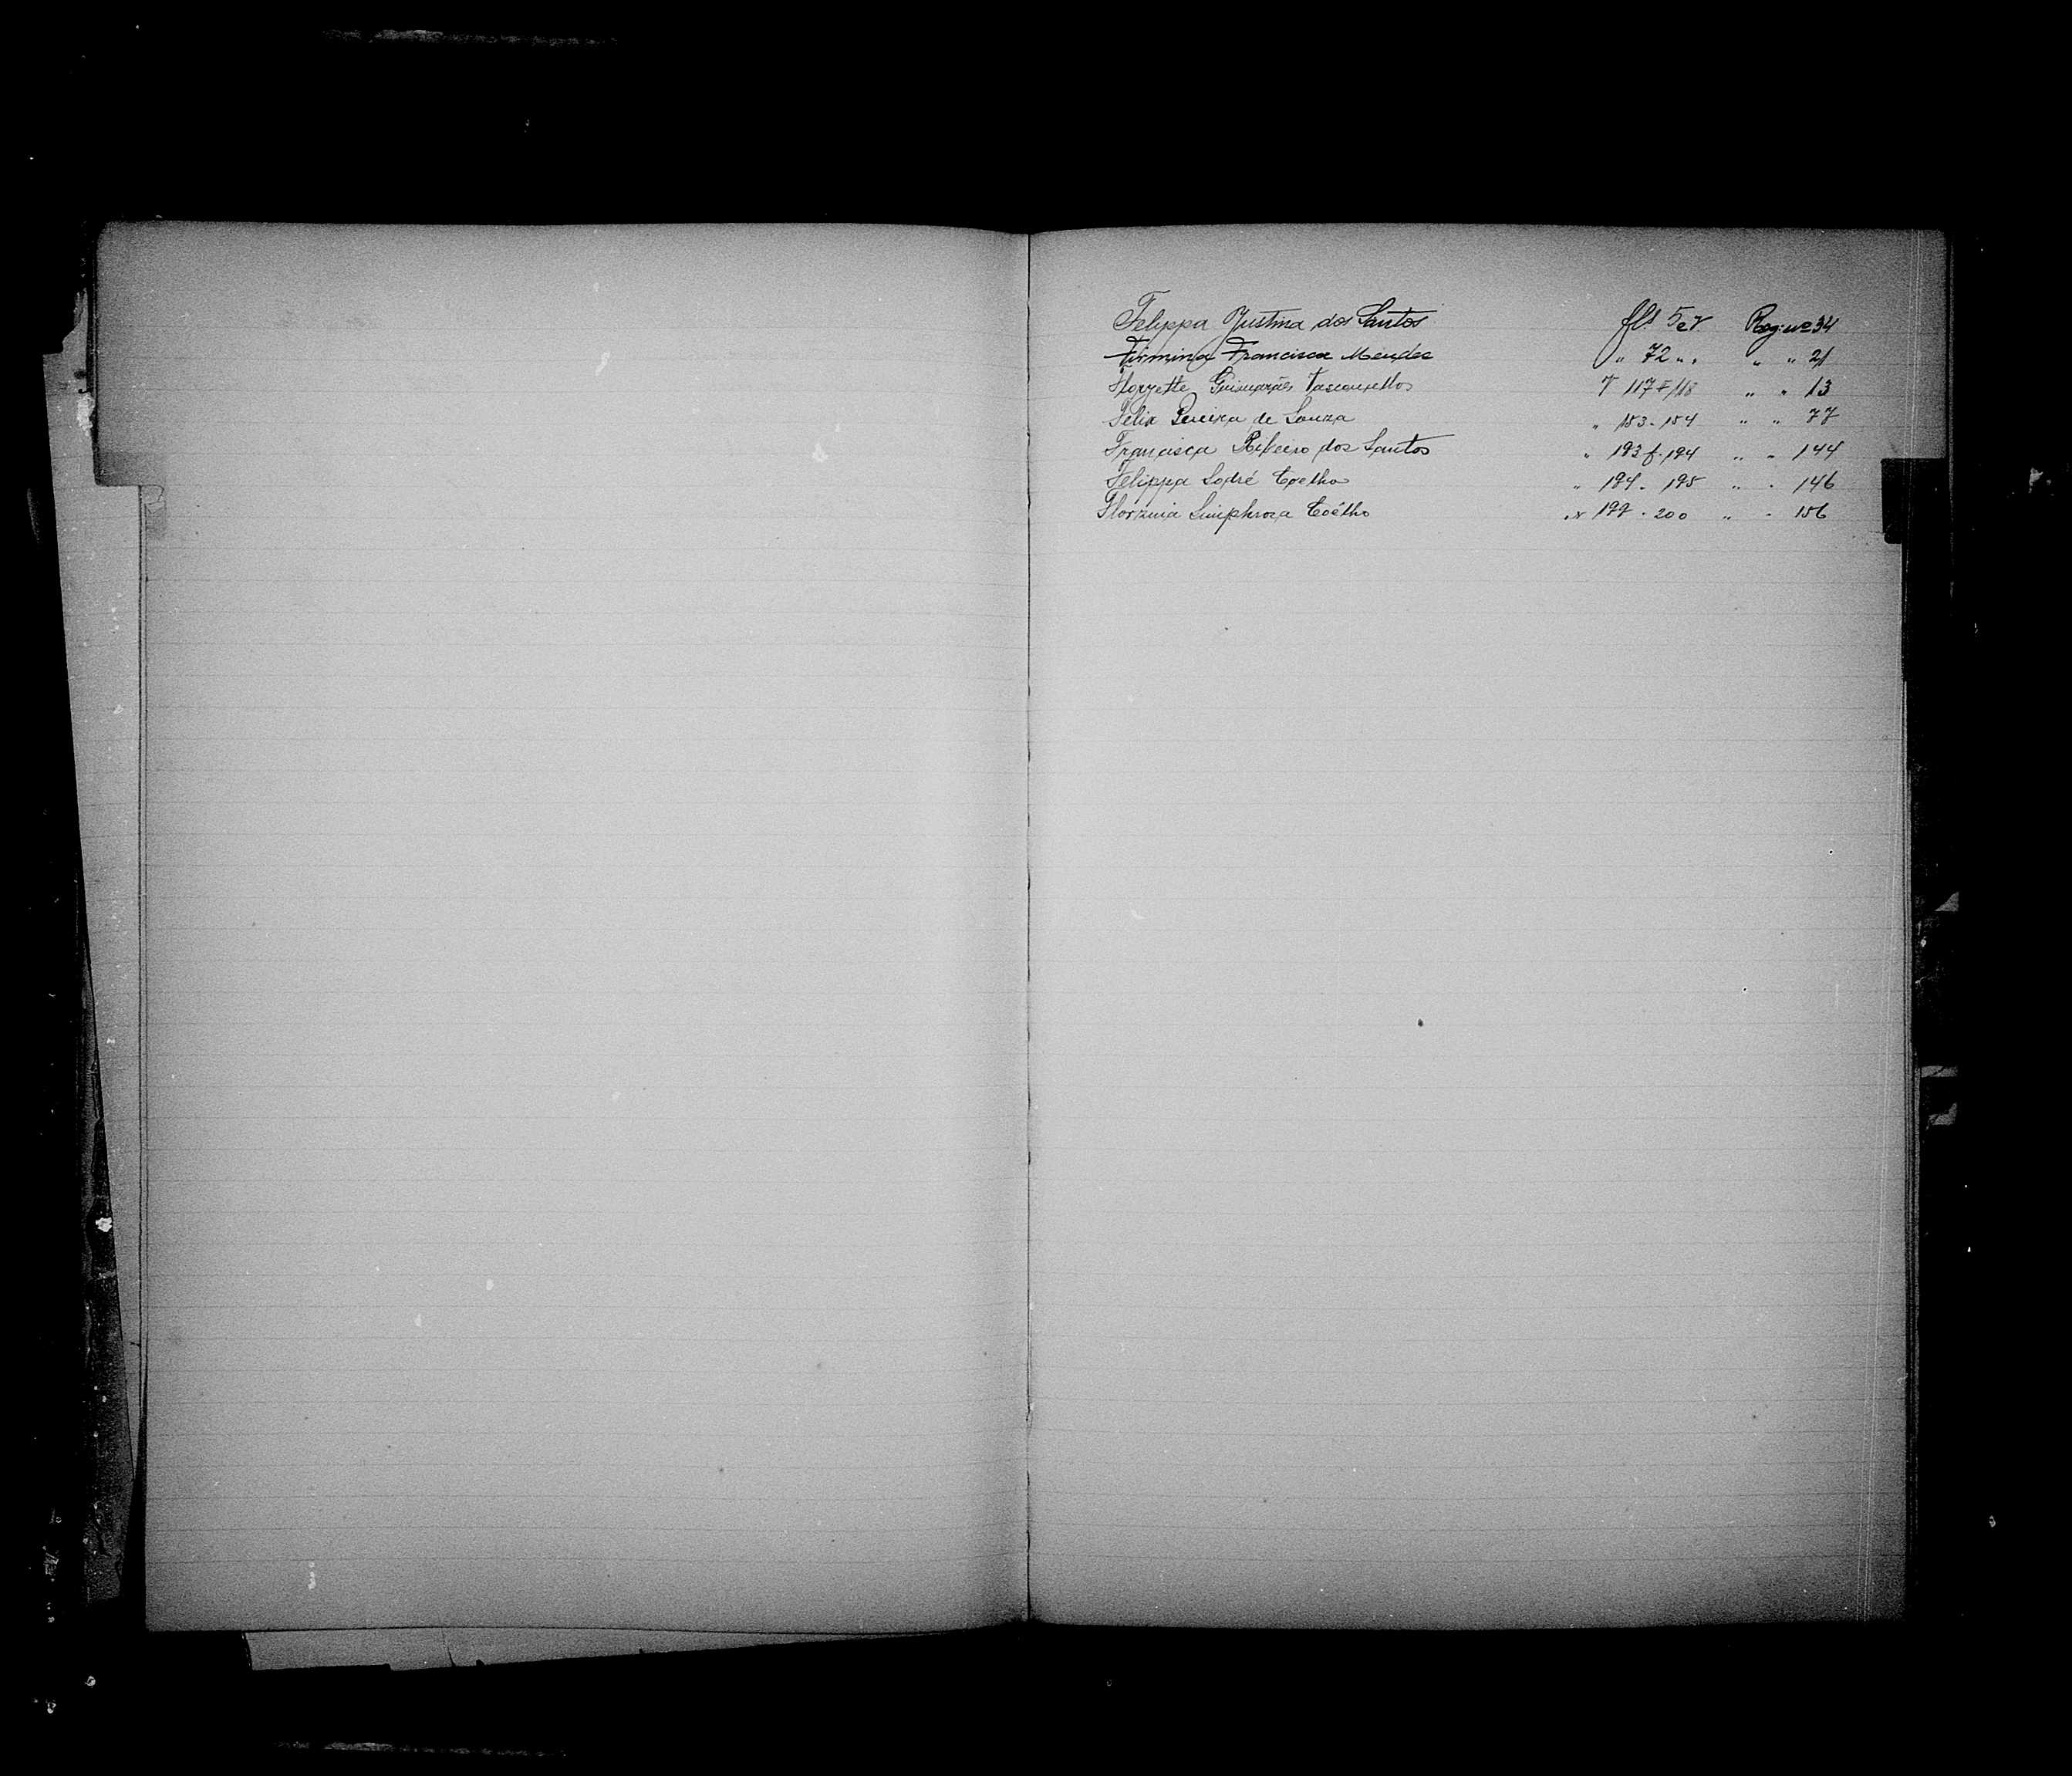 Felippa Justina dos Santos fls 5 e v Reg. nº 34
Firmina Francisca Mendes " 72 " " " " 21
Guimarães Vasconcellos 117 118 " " 13
Felix Pereira de Souza " 153 - 154 " " 77
Francisca Ribeiro dos Santos " 193 f. 194 " " 144
Felippa Sodré Coelho " 194 - 195 " " 146
Simphroza Coêlho 199 - 200 " " 156